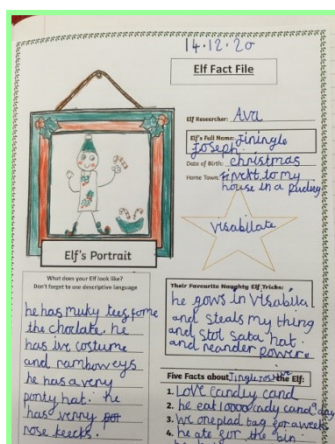 14.12.20
Elf Fact File
Elf Researcher: Ava
Elf's Full Name: Jiningle
Joseph
Date of Birth: christmas
Home Town: to my
house in a
visabilate
Elf's Portrait
What does your Elf look like?
Don't forget to use descriptive language
he has
the chocalate. he
has ive costume
and
he has a very
ponty hat. he
has verry
rose keecks.
Their Favourite Naughty Elf Tricks:
he gows in
and steals my thing
and stol sata hat
and reander powere
Five Facts about the Elf:
1. Love candy cand
2. he eat 10000 cady cand a day
3. We oneplad bag for a week
he ate for the bin